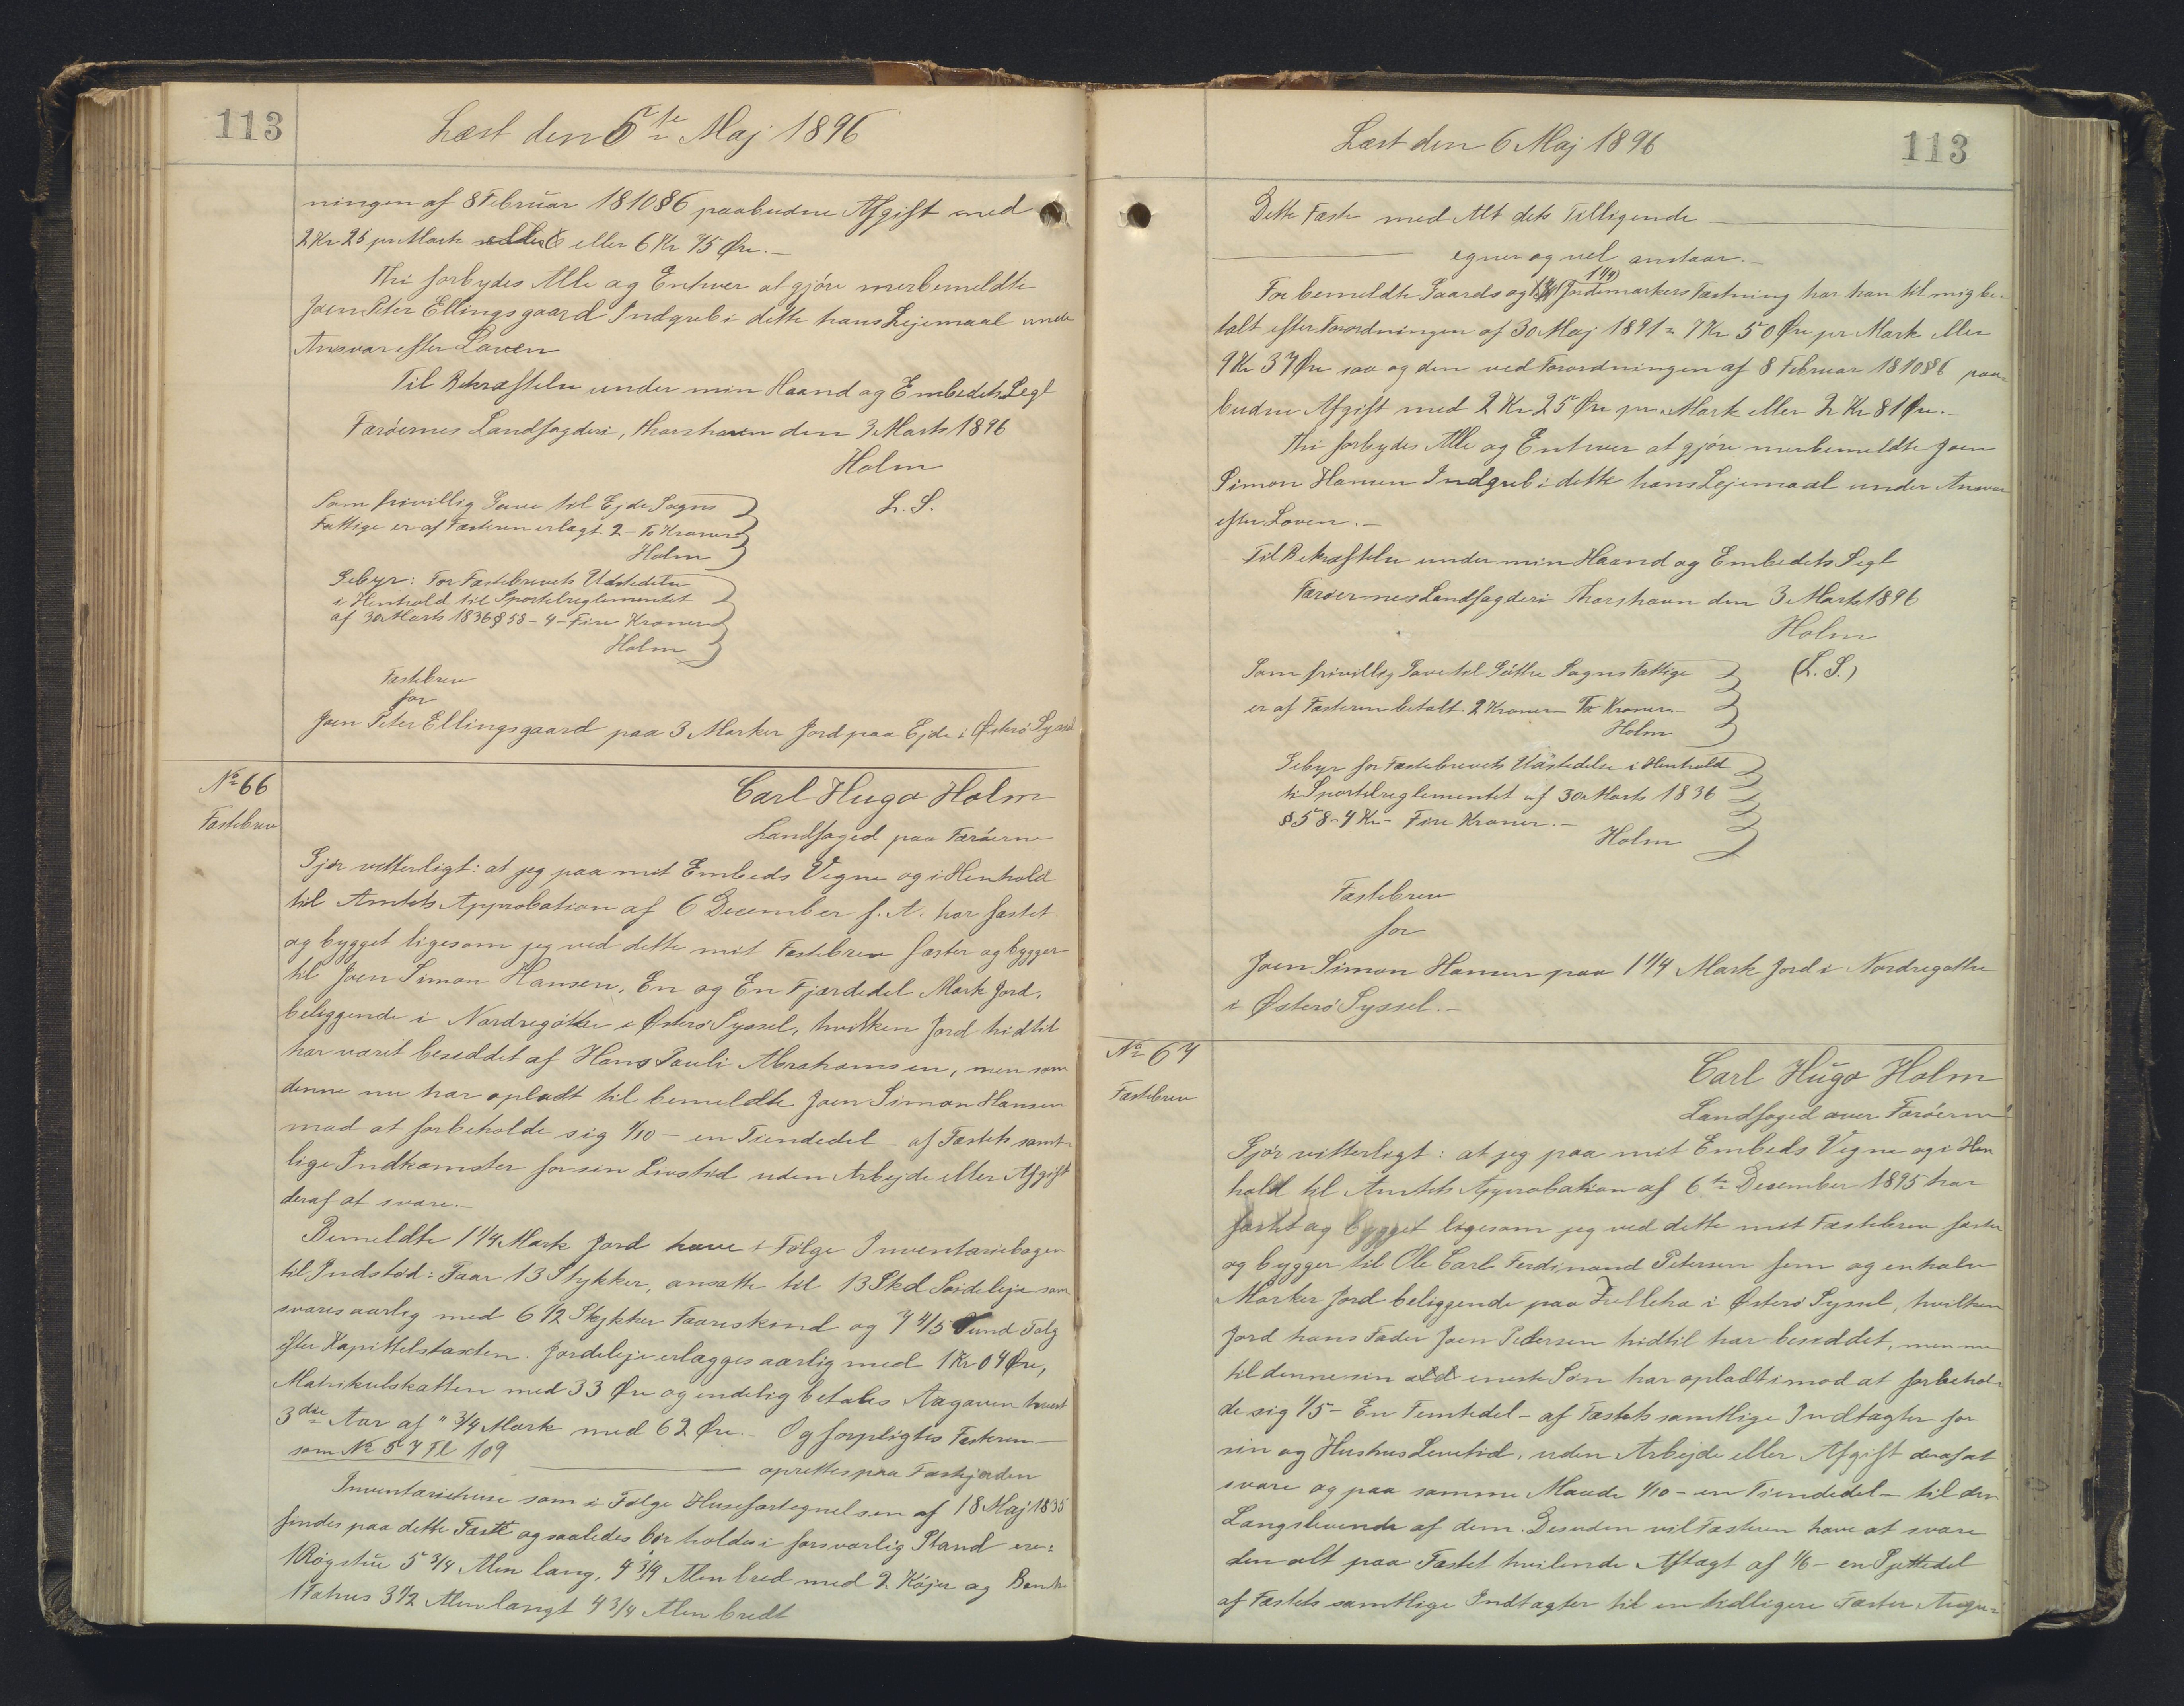 113
Læst den 6te Maj 1896
ningen af 8 Februar 1810 § 6 paabudne Afgift med
2 Kr 25 pr Mark eller 6 Kr 75 Øre.-
Thi forbydes Alle og Enhver at gjøre merbemeldte
Joen Peter Ellingsgaard Indgreb i dette hans Lejemaal under
Ansvar efter Loven
Til Bekræftelse under min Haand og Embedets Segl
Færøernes Landfogderi, Thorshavn den 3 Marts 1896
Holm
L. S.
Som frivillig Gave til Ejde Sogns
Fattige er af Fæsteren erlagt 2 - To Kroner
Holm
Gebyr: For Fæstebrevets Udstedelse
i Henhold til Sportelreglementet
af 30 Marts 1836 § 58 - 4 - Fire Kroner
Holm
Fæstebrev
for
Joen Peter Ellingsgaard paa 3 Marker Jord paa Ejde i Østerø Syssel
No 66
Fæstebrev
Carl Hugo Holm
Landfoged paa Færøerne
Gjør vitterligt: at jeg paa mit Embeds Vegne og i Henhold
til Amtets Approbation af 6 December f. A. har fæstet
og bygget ligesom jeg ved dette mit Fæstebrev fæster og bygger
til Joen Simon Hansen, En og En Fjerdedel Mark Jord,
beliggende i Nordregøthe i Østerø Syssel, hvilken Jord hidtil
har været besiddet af Hans Pauli Abrahamsen, men som
denne nu har opladt til bemeldte Joen Simon Hansen
mod at forbeholde sig 1/10 - en Tiendedel - af Fæstets samt-
lige Indkomster for sin Livstid uden Arbejde eller Afgift
deraf at svare.-
Bemeldte 1 1/4 Mark Jord have i Følge Inventariebogen
til Indstød: Faar 13 Stykker, ansatte til 13 Skd Søideleje som
svares aarlig med 6 1/2 Stykker Faareskind og 7 4/5 Pund Talg
efter Kapittelstaxten. Jordeleje erlægges aarlig med 1 Kr 04 Øre,
Matrikulskatten med 33 Øre og endelig betales Aagaven hvert
3die Aar af " 3/4 Mark med 62 Øre. - Og forpligtes Fæsteren -
som No 57 Fl 109
oprettes paa Fæstejorden
Inventariehuse som i Følge Husefortegnelsen af 18 Maj 1835
findes paa dette Fæste og saaledes bør holdes i forsvarlig Stand ere:
1 Røgstue 5 3/4 Alen lang, 4 3/4 Alen bred med 2 Køjer og Bænke
1 Fæhus 3 1/2 Alen langt 4 3/4 Alen bredt
113
Læst den 6 Maj 1896
Dette Fæste med Alt dets Tilligende
egner og vel anstaar.-
For bemeldte Gaards og 1 1/4 Jordemarkers Fæstning har han til mig be-
talt efter Forordningen af 30 Maj 1891 = 7 Kr 50 Øre pr Mark eller
9 Kr 37 Øre saa og den ved Forordningen af 8 Februar 1810 § 6 paa-
budne Afgift med 2 Kr 25 Øre pr Mark eller 2 Kr 81 Øre.-
Thi forbydes Alle og Enhver at gjøre merbemeldte Joen
Simon Hansen Indgreb i dette hans Lejemaal under Ansvar
efter Loven.-
Til Bekræftelse under min Haand og Embedets Segl
Færøernes Landfogderi Thorshavn den 3 Marts 1896
Holm
(L. S.)
Som frivillig Gave til Gøthe Sogns Fattige
er af Fæsteren betalt 2 Kroner - To Kroner -
Holm
Gebyr for Fæstebrevets Udstedelse i Henhold
til Sportelreglementet af 30 Marts 1836
§ 58 - 4 Kr - Fire Kroner.-
Holm
Fæstebrev
for
Joen Simon Hansen paa 1 1/4 Mark Jord i Nordregøthe
i Østerø Syssel.-
No 67
Fæstebrev
Carl Hugo Holm
Landfoged over Færøerne
Gjør vitterligt: at jeg paa mit Embeds Vegne og i Hen
hold til Amtets Approbation af 6te December 1895 har
fæstet og bygget ligesom jeg ved dette mit Fæstebrev fæster
og bygger til Ole Carl Ferdinand Petersen fem og en halv
Marker Jord beliggende paa i Østerø Syssel, hvilken
Jord hans Fader Joen Pedersen hidtil har besiddet, men nu
til denne sin eneste Søn har opladt imod at forbehol-
de sig 1/5 - En Femtedel - af Fæstets samtlige Indtægter for
sin og Hustrus Levetid, uden Arbejde eller Afgift deraf at
svare og paa samme Maade 1/10 - en Tiendedel - til den
Længstlevende af dem. Desuden vil Fæsteren have at svare
den alt paa Fæstet hvilende Aftægt af 1/6 - en Sjettedel
af Fæstets samtlige Indtægter til en tidligere Fæster